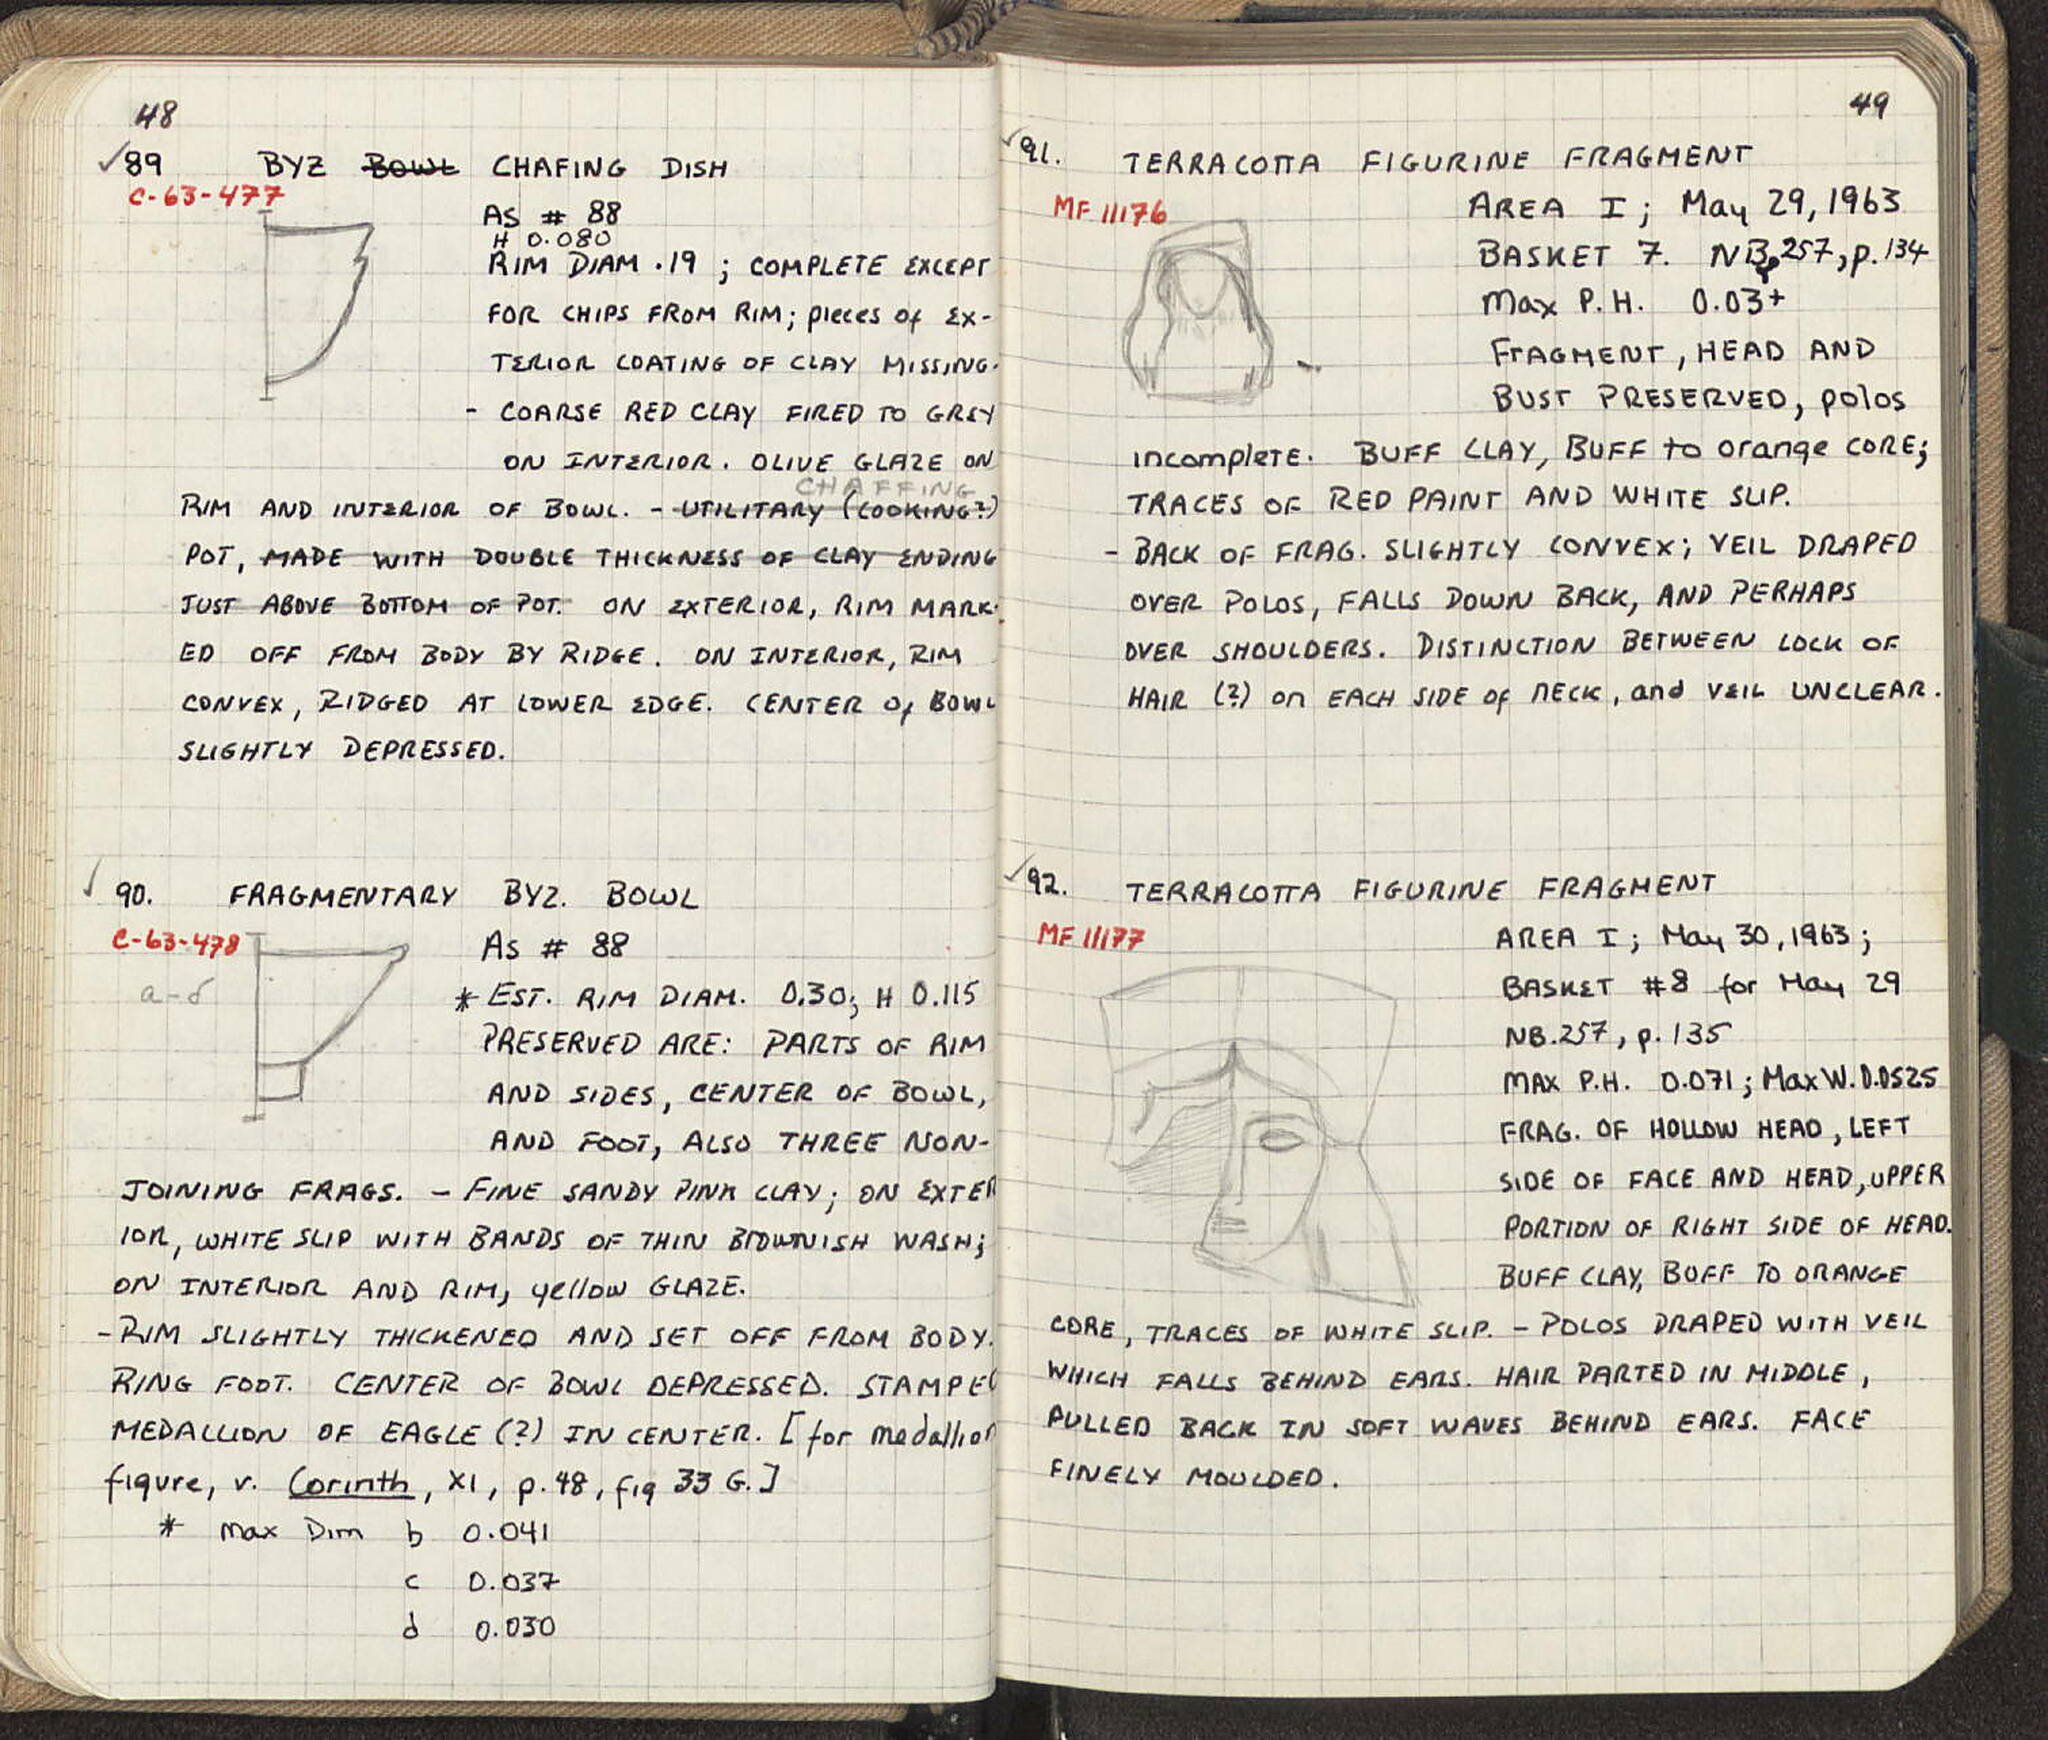 48
✓89 BYZ BOWL CHAFING DISH
C-63-477
AS # 88
H 0.080
RIM DIAM .19 ; COMPLETE EXCEPT
FOR CHIPS FROM RIM; pieces of EX-
TERIOR COATING OF CLAY MISSING.
- COARSE RED CLAY FIRED TO GREY
ON INTERIOR. OLIVE GLAZE ON
CHAFFING
RIM AND INTERIOR OF BOWL. - UTILITARY (COOKING?)
POT, MADE WITH DOUBLE THICKNESS OF CLAY ENDING
JUST ABOVE BOTTOM OF POT. ON EXTERIOR, RIM MARK-
ED OFF FROM BODY BY RIDGE. ON INTERIOR, RIM
CONVEX, RIDGED AT LOWER EDGE. CENTER of BOWL
SLIGHTLY DEPRESSED.
✓ 90. FRAGMENTARY BYZ. BOWL
C-63-478
a-d
AS # 88
* EST. RIM DIAM. 0.30; H 0.115
PRESERVED ARE: PARTS OF RIM
AND SIDES, CENTER OF BOWL,
AND FOOT, ALSO THREE NON-
JOINING FRAGS. - FINE SANDY PINK CLAY; ON EXTER
IOR, WHITE SLIP WITH BANDS OF THIN BROWNISH WASH;
ON INTERIOR AND RIM, yellow GLAZE.
- RIM SLIGHTLY THICKENED AND SET OFF FROM BODY.
RING FOOT. CENTER OF BOWL DEPRESSED. STAMPED
MEDALLION OF EAGLE (?) IN CENTER. [for medallion
figure, v. Corinth, XI, p. 48, fig 33 G.]
* Max Dim b 0.041
c 0.037
d 0.030
49
✓91. TERRACOTTA FIGURINE FRAGMENT
MF 11176
AREA I; May 29, 1963
BASKET 7. NB 257, p. 134
Max P.H. 0.03+
FRAGMENT, HEAD AND
BUST PRESERVED, polos
incomplete. BUFF CLAY, BUFF to orange CORE;
TRACES OF RED PAINT AND WHITE SLIP.
- BACK OF FRAG. SLIGHTLY CONVEX; VEIL DRAPED
OVER POLOS, FALLS DOWN BACK, AND PERHAPS
OVER SHOULDERS. DISTINCTION BETWEEN LOCK OF
HAIR (?) on EACH SIDE of NECK, and VEIL UNCLEAR.
✓92. TERRACOTTA FIGURINE FRAGMENT
MF 11177
AREA I; May 30, 1963;
BASKET #8 for May 29
NB. 257, p. 135
MAX P.H. 0.071; Max W. 0.0525
FRAG. OF HOLLOW HEAD, LEFT
SIDE OF FACE AND HEAD, UPPER
PORTION OF RIGHT SIDE OF HEAD.
BUFF CLAY, BUFF TO ORANGE
CORE, TRACES OF WHITE SLIP. - POLOS DRAPED WITH VEIL
WHICH FALLS BEHIND EARS. HAIR PARTED IN MIDDLE,
PULLED BACK IN SOFT WAVES BEHIND EARS. FACE
FINELY MOULDED.